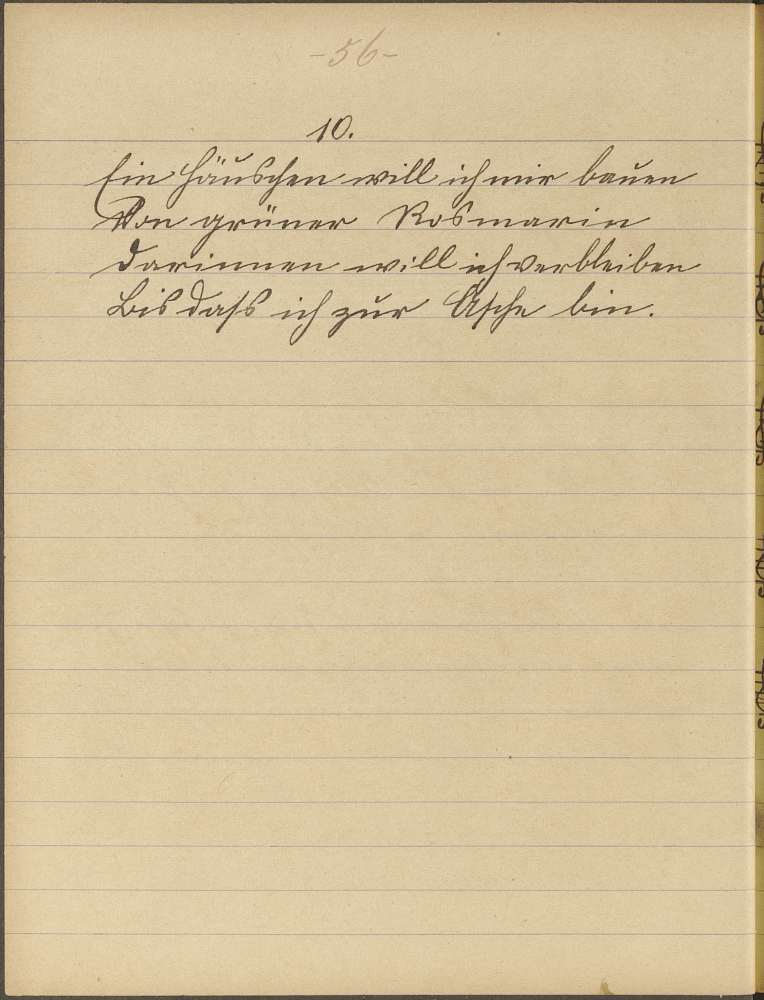 -56-
10.
Ein Häuschen will ich mir bauen
Von grüner Rosmarin
Darinnen will ich verbleiben
Bis dass ich zur Asche bin.